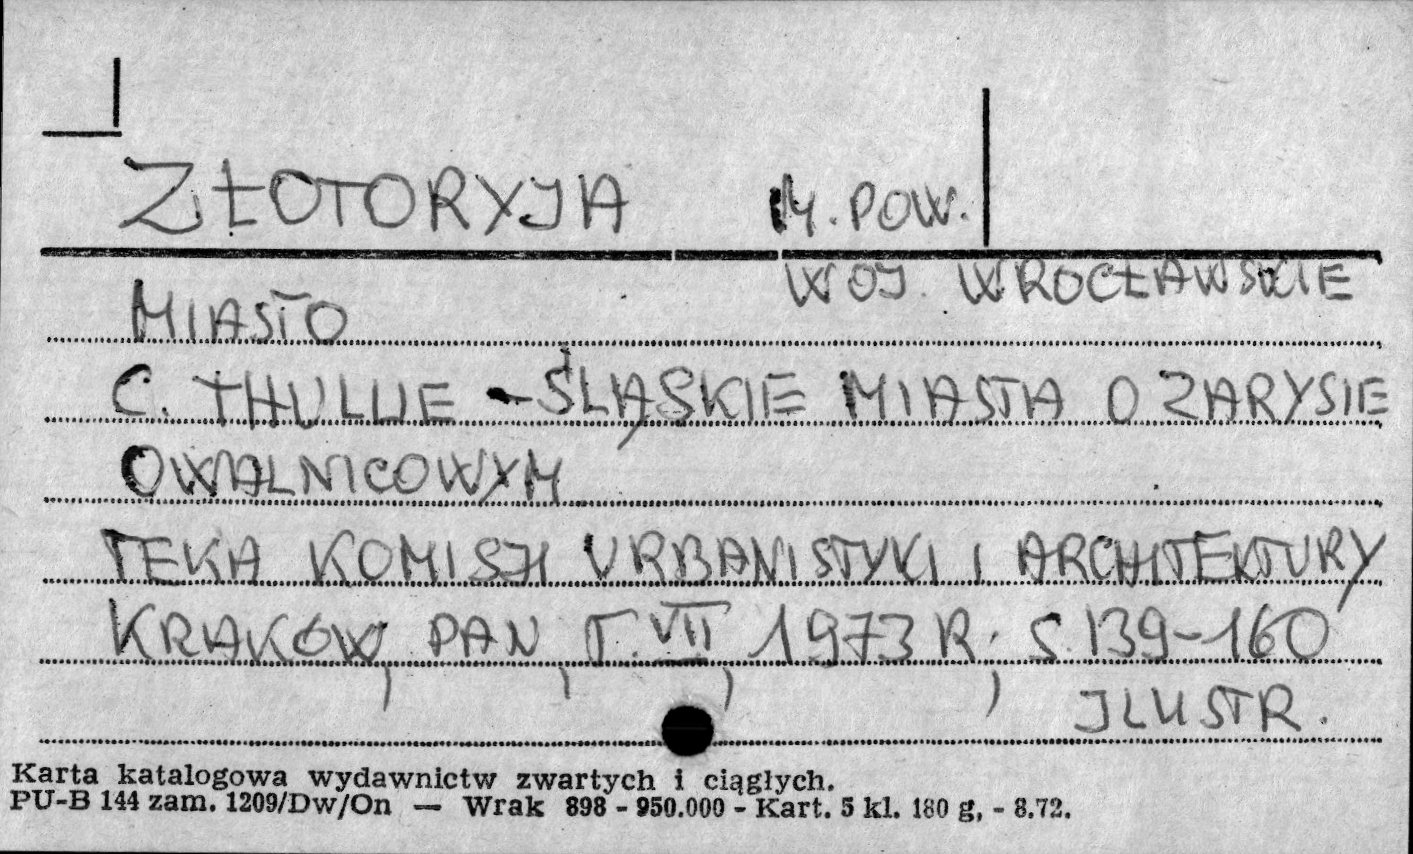 ZŁOTORYJA M. POW.
WOJ. WROCŁAWSKIE
MIASTO
C. THULLIE - ŚLĄSKIE MIASTA O ZARYSIE
OWALNICOWYM
TEKA KOMISJI URBANISTYKI I ARCHITEKTURY
KRAKÓW, PAN, T. VII, 1973 R., S. 139-160
ILUSTR.
Karta katalogowa wydawnictw zwartych i ciągłych.
PU-B 144 zam. 1209/Dw/On — Wrak 898 - 950.000 - Kart. 5 kl. 180 g, - 8.72.